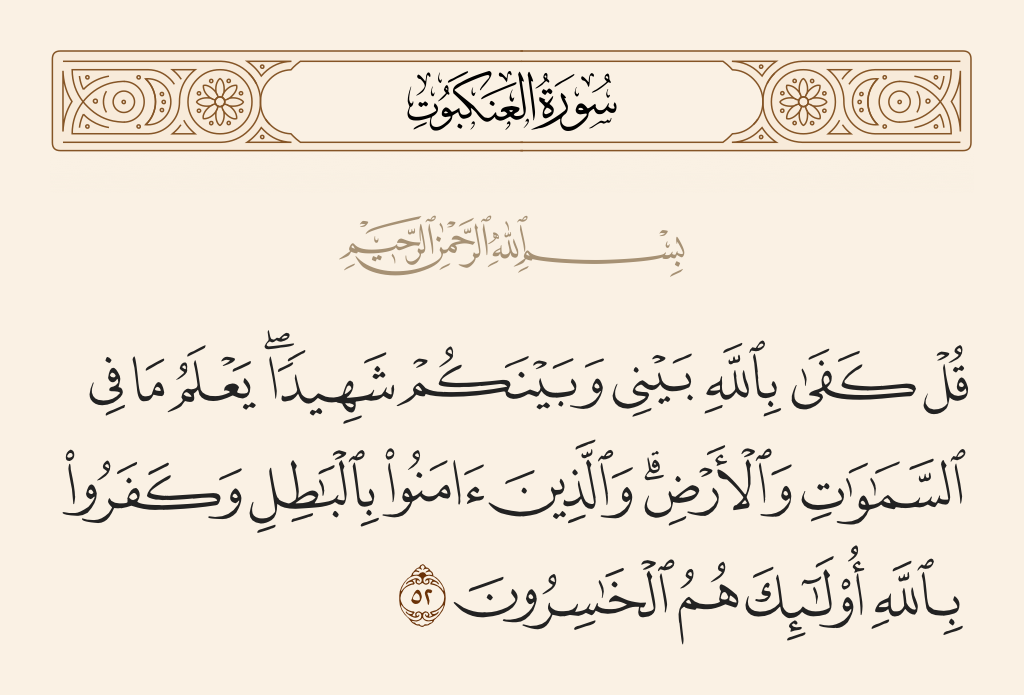 سُورَةُ الْعَنكَبُوتِ
بِسْمِ ٱللَّهِ ٱلرَّحْمَٰنِ ٱلرَّحِيمِ
قُلْ كَفَىٰ بِٱللَّهِ بَيْنِى وَبَيْنَكُمْ شَهِيدًۭا ۖ يَعْلَمُ مَا فِى
ٱلسَّمَـٰوَٰتِ وَٱلْأَرْضِ ۗ وَٱلَّذِينَ ءَامَنُوا۟ بِٱلْبَـٰطِلِ وَكَفَرُوا۟
بِٱللَّهِ أُو۟لَـٰٓئِكَ هُمُ ٱلْخَـٰسِرُونَ ٥٢